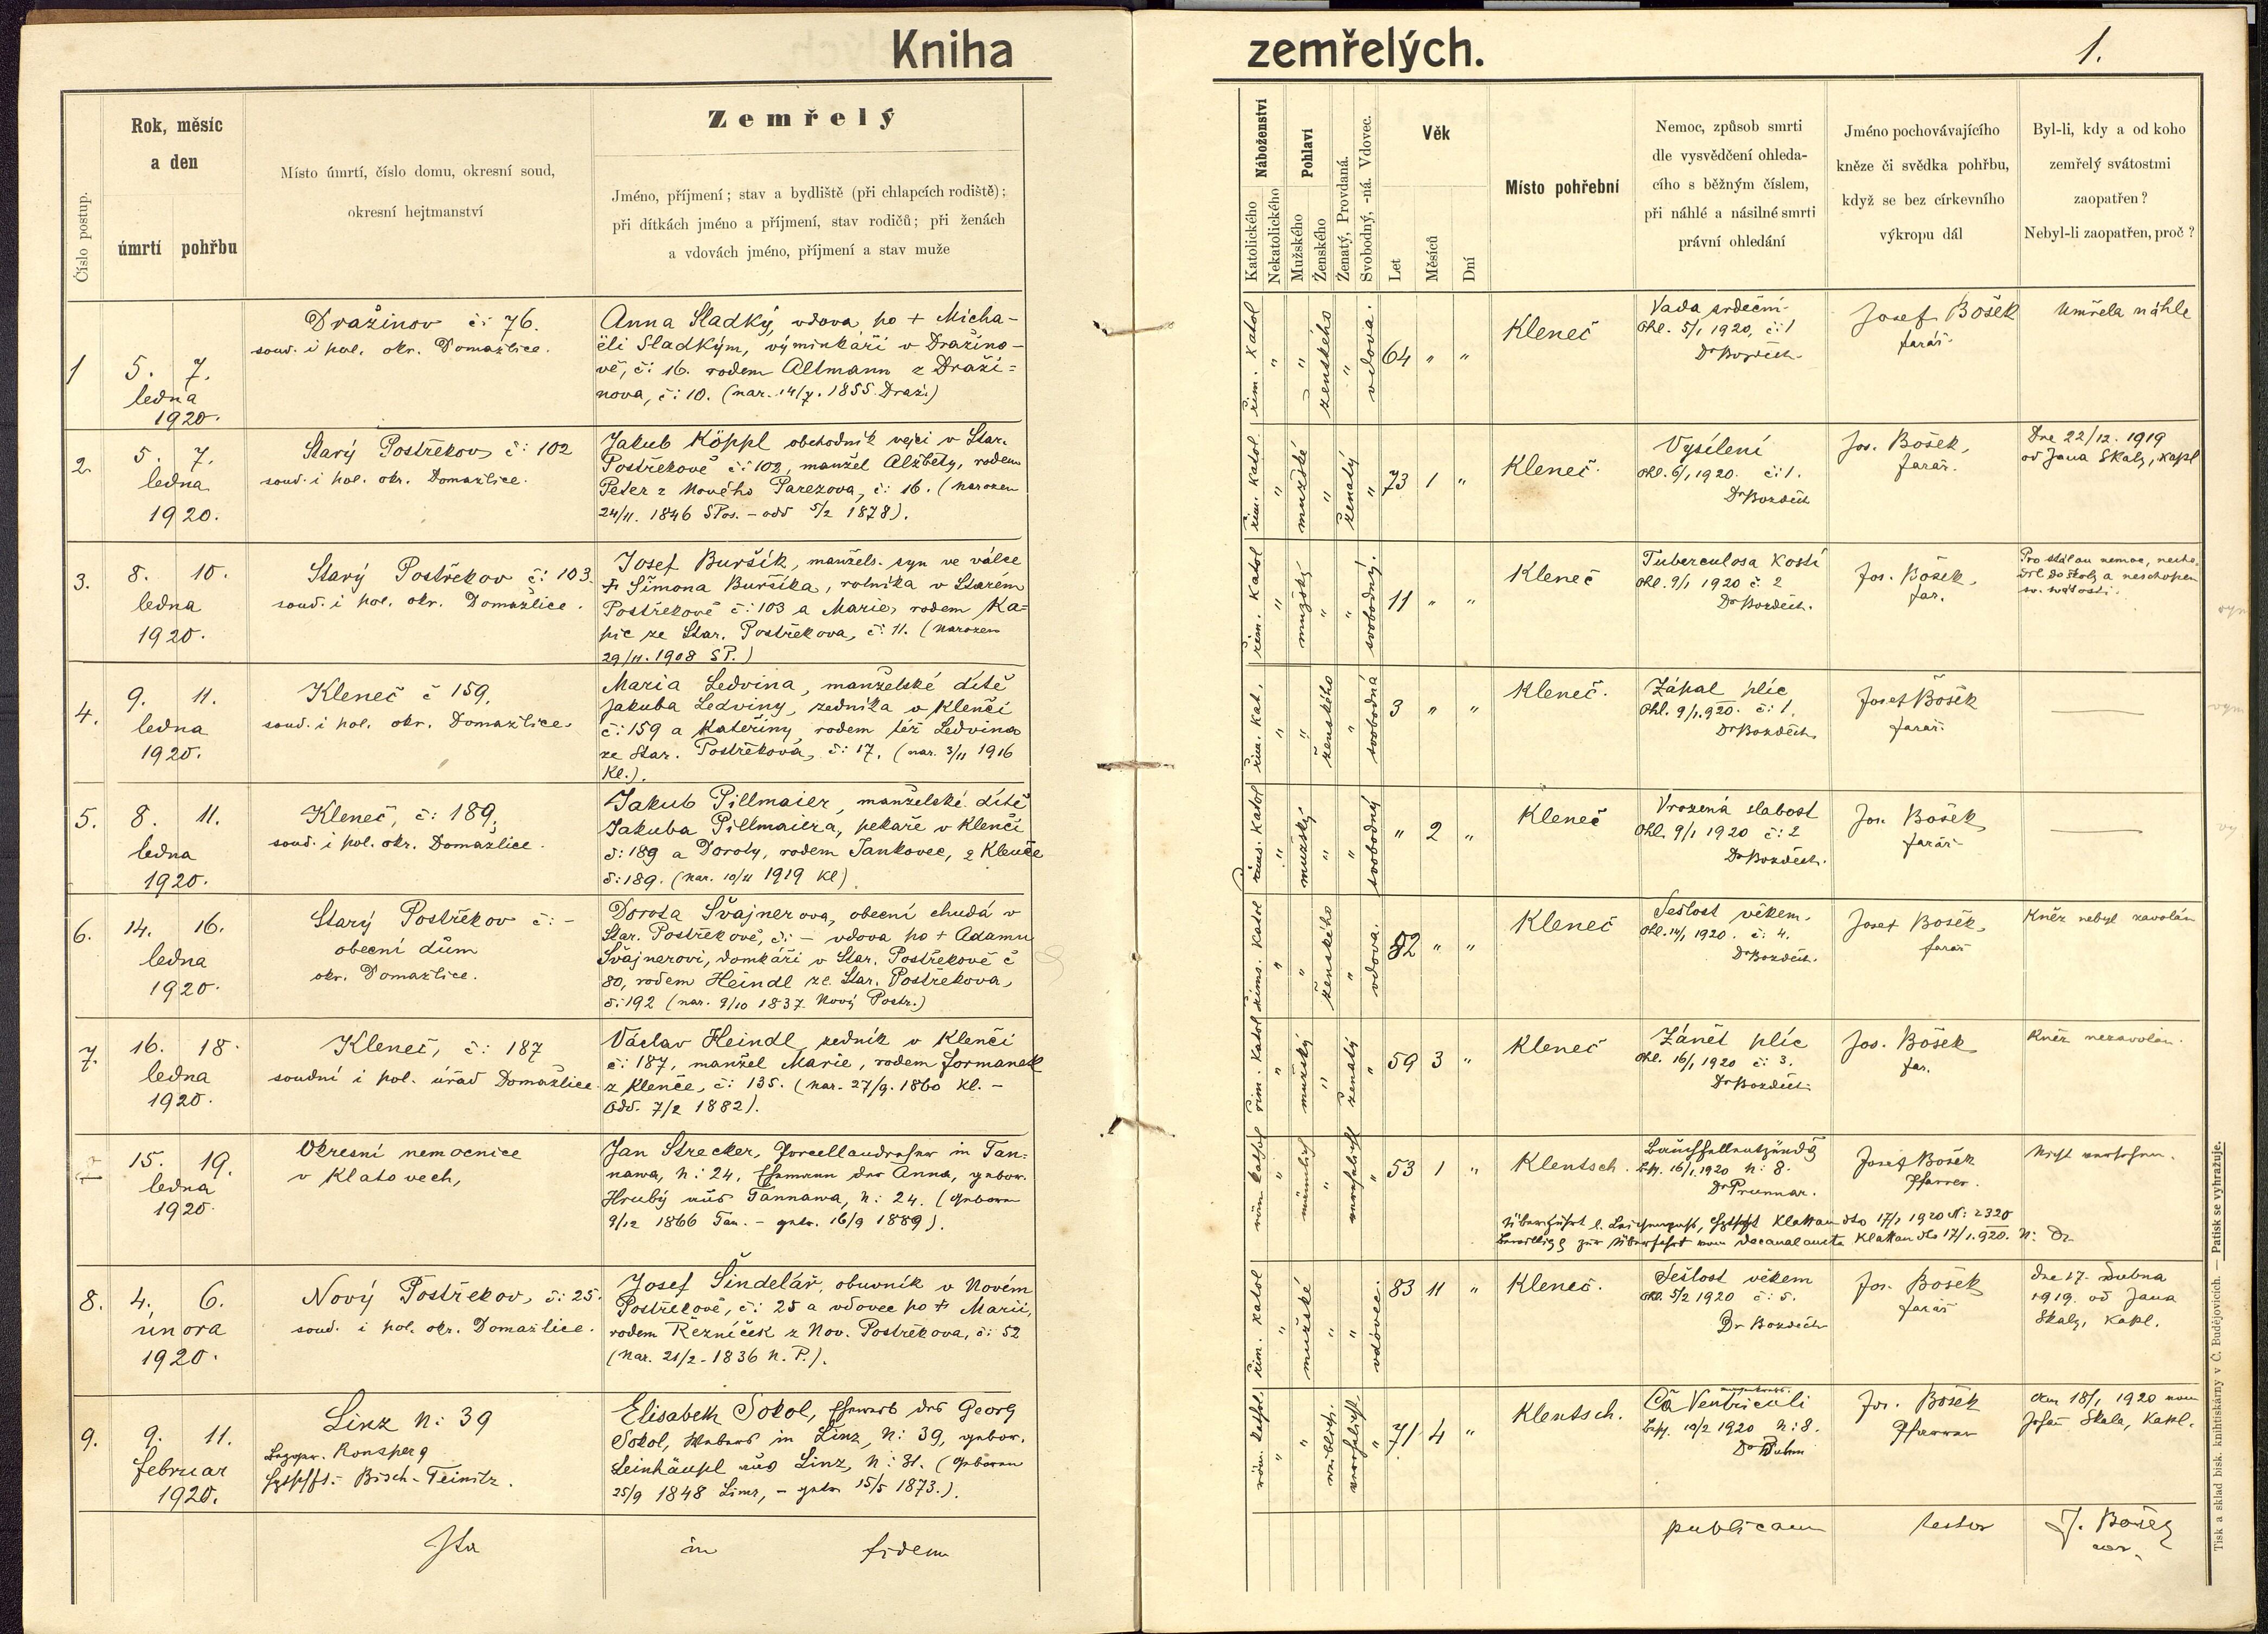 Kniha zemřelých.
1.
Číslo postup.
Rok, měsíc
a den
úmrtí pohřbu
Místo úmrtí, číslo domu, okresní soud,
okresní hejtmanství
Zemřelý
Jméno, příjmení; stav a bydliště (při chlapcích rodiště);
při dítkách jméno a příjmení, stav rodičů; při ženách
a vdovách jméno, příjmení a stav muže
Náboženství
Katolického
Nekatolického
Pohlaví
Mužského
Ženského
Ženatý, Provdaná.
Svobodný, -ná. Vdovec.
Věk
Let
Měsíců
Dní
Místo pohřební
Nemoc, způsob smrti
dle vysvědčení ohleda-
cího s běžným číslem,
při náhlé a násilné smrti
právní ohledání
Jméno pochovávajícího
kněze či svědka pohřbu,
když se bez církevního
výkropu dál
Byl-li, kdy a od koho
zemřelý svátostmi
zaopatřen?
Nebyl-li zaopatřen, proč?
1
5. 7.
ledna
1920.
Dražinov č: 76.
soud. i pol. okr. Domažlice.
Anna Sladký, vdova po + Micha-
ëli Sladkým, výminkáři v Dražino-
vě, č: 16. rodem Altmann z Draži=
nova, č: 10. (nar. 14/7. 1855 Draži)
řím. katol
" "
ženského
"
vdova.
64 " "
Kleneč
Vada srdeční
Ohl. 5/1 1920, č: 1
Dr Bozděch.
Josef Bošek
farář.
Umřela náhle
2.
5. 7.
ledna
1920.
Starý Postřekov, č: 102
soud. i pol. okr. Domažlice.
Jakub Köppl obchodník vejci v Star.
Postřekově č: 102, manžel Alžběty, rodem
Peter z Nového Pařezova, č: 16. (narozen
24/11. 1846 SPos. – odd 5/2 1878).
řím. katol.
"
mužské
"
ženatý
"
73 1 "
Kleneč.
Vysílení
Ohl. 6/1 1920. č: 1.
Dr Bozděch
Jos. Bošek,
farář.
Dne 22/12. 1919
od Jana Skaly, kapl
3.
8. 10.
ledna
1920.
Starý Postřekov č: 103.
soud. i pol. okr. Domažlice.
Josef Buršík, manžels. syn ve válce
+ Šimona Buršíka, rolníka v Starém
Postřekově č: 103 a Marie, rodem Ka=
pic ze Star. Postřekova, č: 11. (narozen
29/11. 1908 SP.)
řím. katol
"
mužský
" "
svobodný.
11 " "
Kleneč
Tuberculosa kostí
Ohl. 9/1 1920 č. 2
Dr Bozděch.
Jos. Bošek,
far.
Pro stálou nemoc, necho-
dil do školy a neschopen
sv. svátosti.
4.
9. 11.
ledna
1920.
Kleneč č 159,
soud. i pol. okr. Domažlice.
Maria Ledvina, manželské dítě
Jakuba Ledviny, zedníka v Klenčí
č: 159 a Kateřiny, rodem též Ledvina
ze Star. Postřekova, č: 17. (nar. 3/11 1916
Kl.).
řím. kat.
" "
ženského
"
svobodná
3 " "
Kleneč.
Zápal plic
Ohl. 9/1. 920. č: 1.
Dr Bozděch.
Josef Bošek
farář.
5.
8. 11.
ledna
1920.
Kleneč, č: 189,
soud. i pol. okr. Domažlice.
Jakub Pillmaier, manželské dítě
Jakuba Pillmaiera, pekaře v Klenčí
č: 189 a Doroty, rodem Jankovec, z Klenče
č: 189. (nar. 10/11 1919 Kl)
říms. katol
"
mužský
" "
svobodný
" 2 "
Kleneč
Vrozená slabost
Ohl. 9/1 1920 č: 2
Dr Bozděch.
Jos. Bošek
farář
6.
14. 16.
ledna
1920.
Starý Postřekov č: –
obecní dům
okr. Domažlice.
Dorota Švajnerova, obecní chudá v
Star. Postřekově, č: – vdova po + Adamu
Švajnerovi, domkáři v Star. Postřekově č
80, rodem Heindl ze Star. Postřekova,
č: 192 (nar. 9/10 1837. Nový Postř.)
říms. katol
" "
ženského
"
vdova.
82 " "
Kleneč
Sešlost věkem.
Ohl. 14/1 1920. č: 4.
Dr Bozděch.
Josef Bošek,
farář
Kněz nebyl zavolán
7.
16. 18.
ledna
1920.
Kleneč, č: 187
soudní i pol. úřad Domažlice.
Václav Heindl, zedník v Klenčí
č: 187, manžel Marie, rodem Formanek
z Klenče, č: 135. (nar. 27/9. 1860 Kl. –
odd. 7/2 1882).
řím. katol
"
mužský
"
ženatý
"
59 3 "
Kleneč
Zánět plic
Ohl. 16/1 1920 č: 3.
Dr Bozděch
Jos. Bošek
far.
Kněz nezavolán.
15. 19.
ledna
1920.
Okresní nemocnice
v Klatovech,
Jan Strecker, Porcellandreher in Tan-
nawa, N: 24, Ehemann der Anna, gebor.
Hrubý aus Tannawa, N: 24. (geboren
9/12 1866 Tan. – getr. 16/9 1889).
röm. kathol
"
männlich
"
verehelicht
"
53 1 "
Klentsch.
Bauchfellentzündg
Besch. 16/1 1920 N: 8.
Dr Prunnar.
Josef Bošek
Pfarrer.
Nicht versehen.
Überführt l. Leichenpaß, Hptschft Klattau dto 17/1 1920 N: 2320
Bewilligg zur Überfahrt vom Decanalamte Klattau dto 17/1. 920. N:
8.
4. 6.
února
1920.
Nový Postřekov, č: 25.
soud. i pol. okr. Domažlice.
Josef Šindelář, obuvník v Novém
Postřekově, č: 25 a vdovec po + Marii,
rodem Řezníček z Nov. Postřekova, č: 52
(nar. 21/2. 1836 N. P.).
řím. katol
"
mužské
" "
vdovec.
83 11 "
Kleneč.
Sešlost věkem
Ohl. 5/2 1920 č: 5.
Dr Bozděch
Jos. Bošek
farář
Dne 17. dubna
1919. od Jana
Skaly, kapl.
9.
9. 11.
februar
1920.
Linz N: 39
Bezger. Ronsperg
Hptschft. Bisch-Teinitz.
Elisabeth Sokol, Eheweib des Georg
Sokol, Webers in Linz, N: 39, gebor.
Leinhäupl aus Linz, N: 31. (geboren
25/9 1848 Linz, – getr 15/5 1873.).
röm. kathol.
" "
weiblich.
verehelicht
"
71 4 "
Klentsch.
Ca Ventriculi
Besch. 10/2 1920 N: 8.
Jos. Bošek
Pfarrer
Am 18/1 1920 vom
Johann Skala, Kapl.
Ita in fidem publicam testor J. Bošek
Tisk a sklad bisk. knihtiskárny v Č. Budějovicích. — Patisk se vyhražuje.